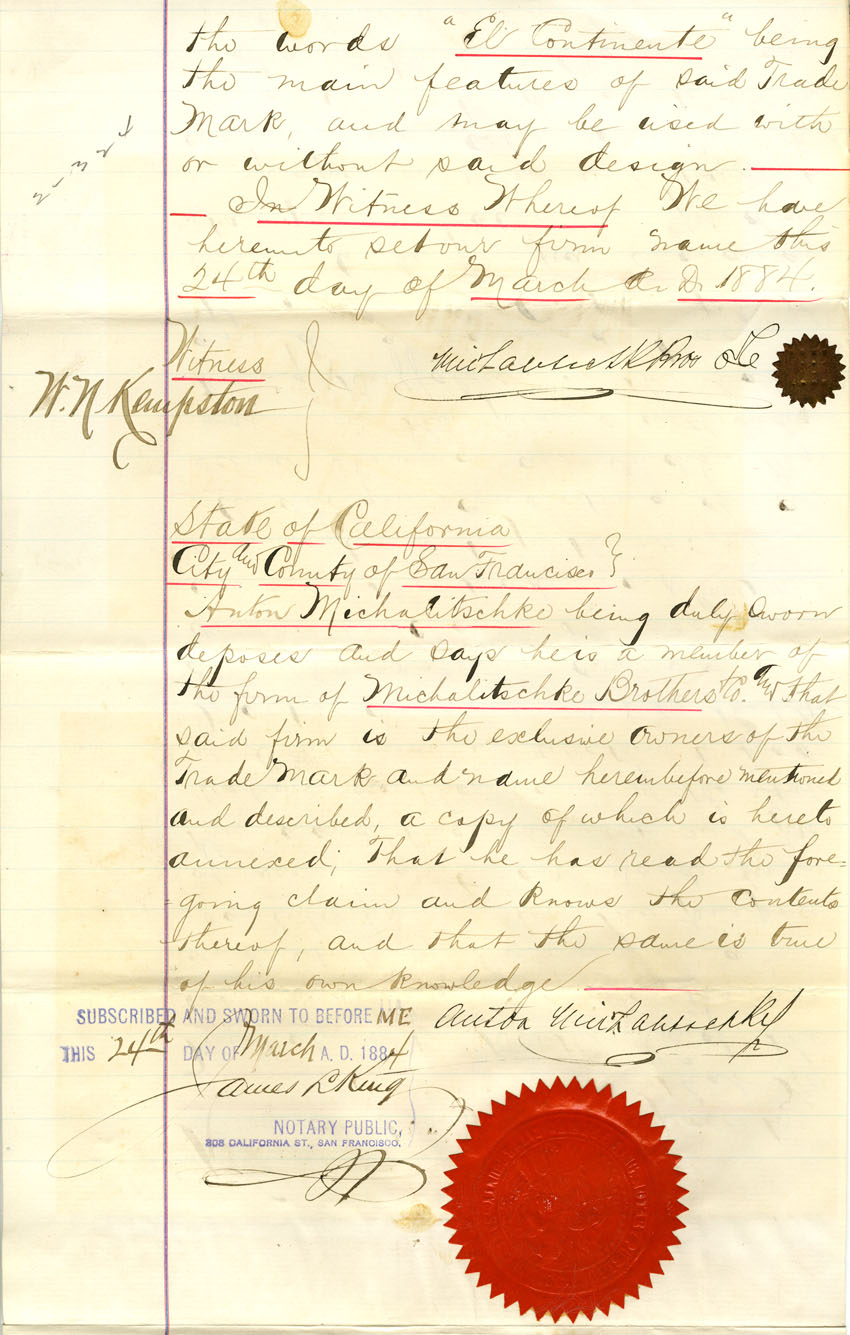 the words "El Continente" being
the main features of said Trade
Mark, and may be used with
or without said design.
In Witness Whereof We have
hereunto set our firm name this
24th day of March A. D. 1884.
Witness
W. N Kempston
Michalitschke Bros & Co
State of California
City and County of San Francisco }
Anton Michalitschke being duly sworn
deposes and says he is a member of
the firm of Michalitschke Brothers & Co. and that
said firm is the exclusive owners of the
Trade Mark and name hereinbefore mentioned
and described, a copy of which is hereto
annexed; That he has read the fore=
=going claim and knows the contents
thereof, and that the same is true
of his own knowledge
Anton Michalitschke
SUBSCRIBED AND SWORN TO BEFORE ME
THIS 24th DAY OF March A. D. 1884
James L King
NOTARY PUBLIC,
308 CALIFORNIA ST., SAN FRANCISCO.